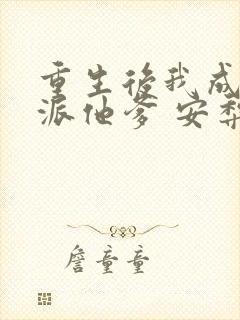 重生後我成
派他爹 安梨
詹童童